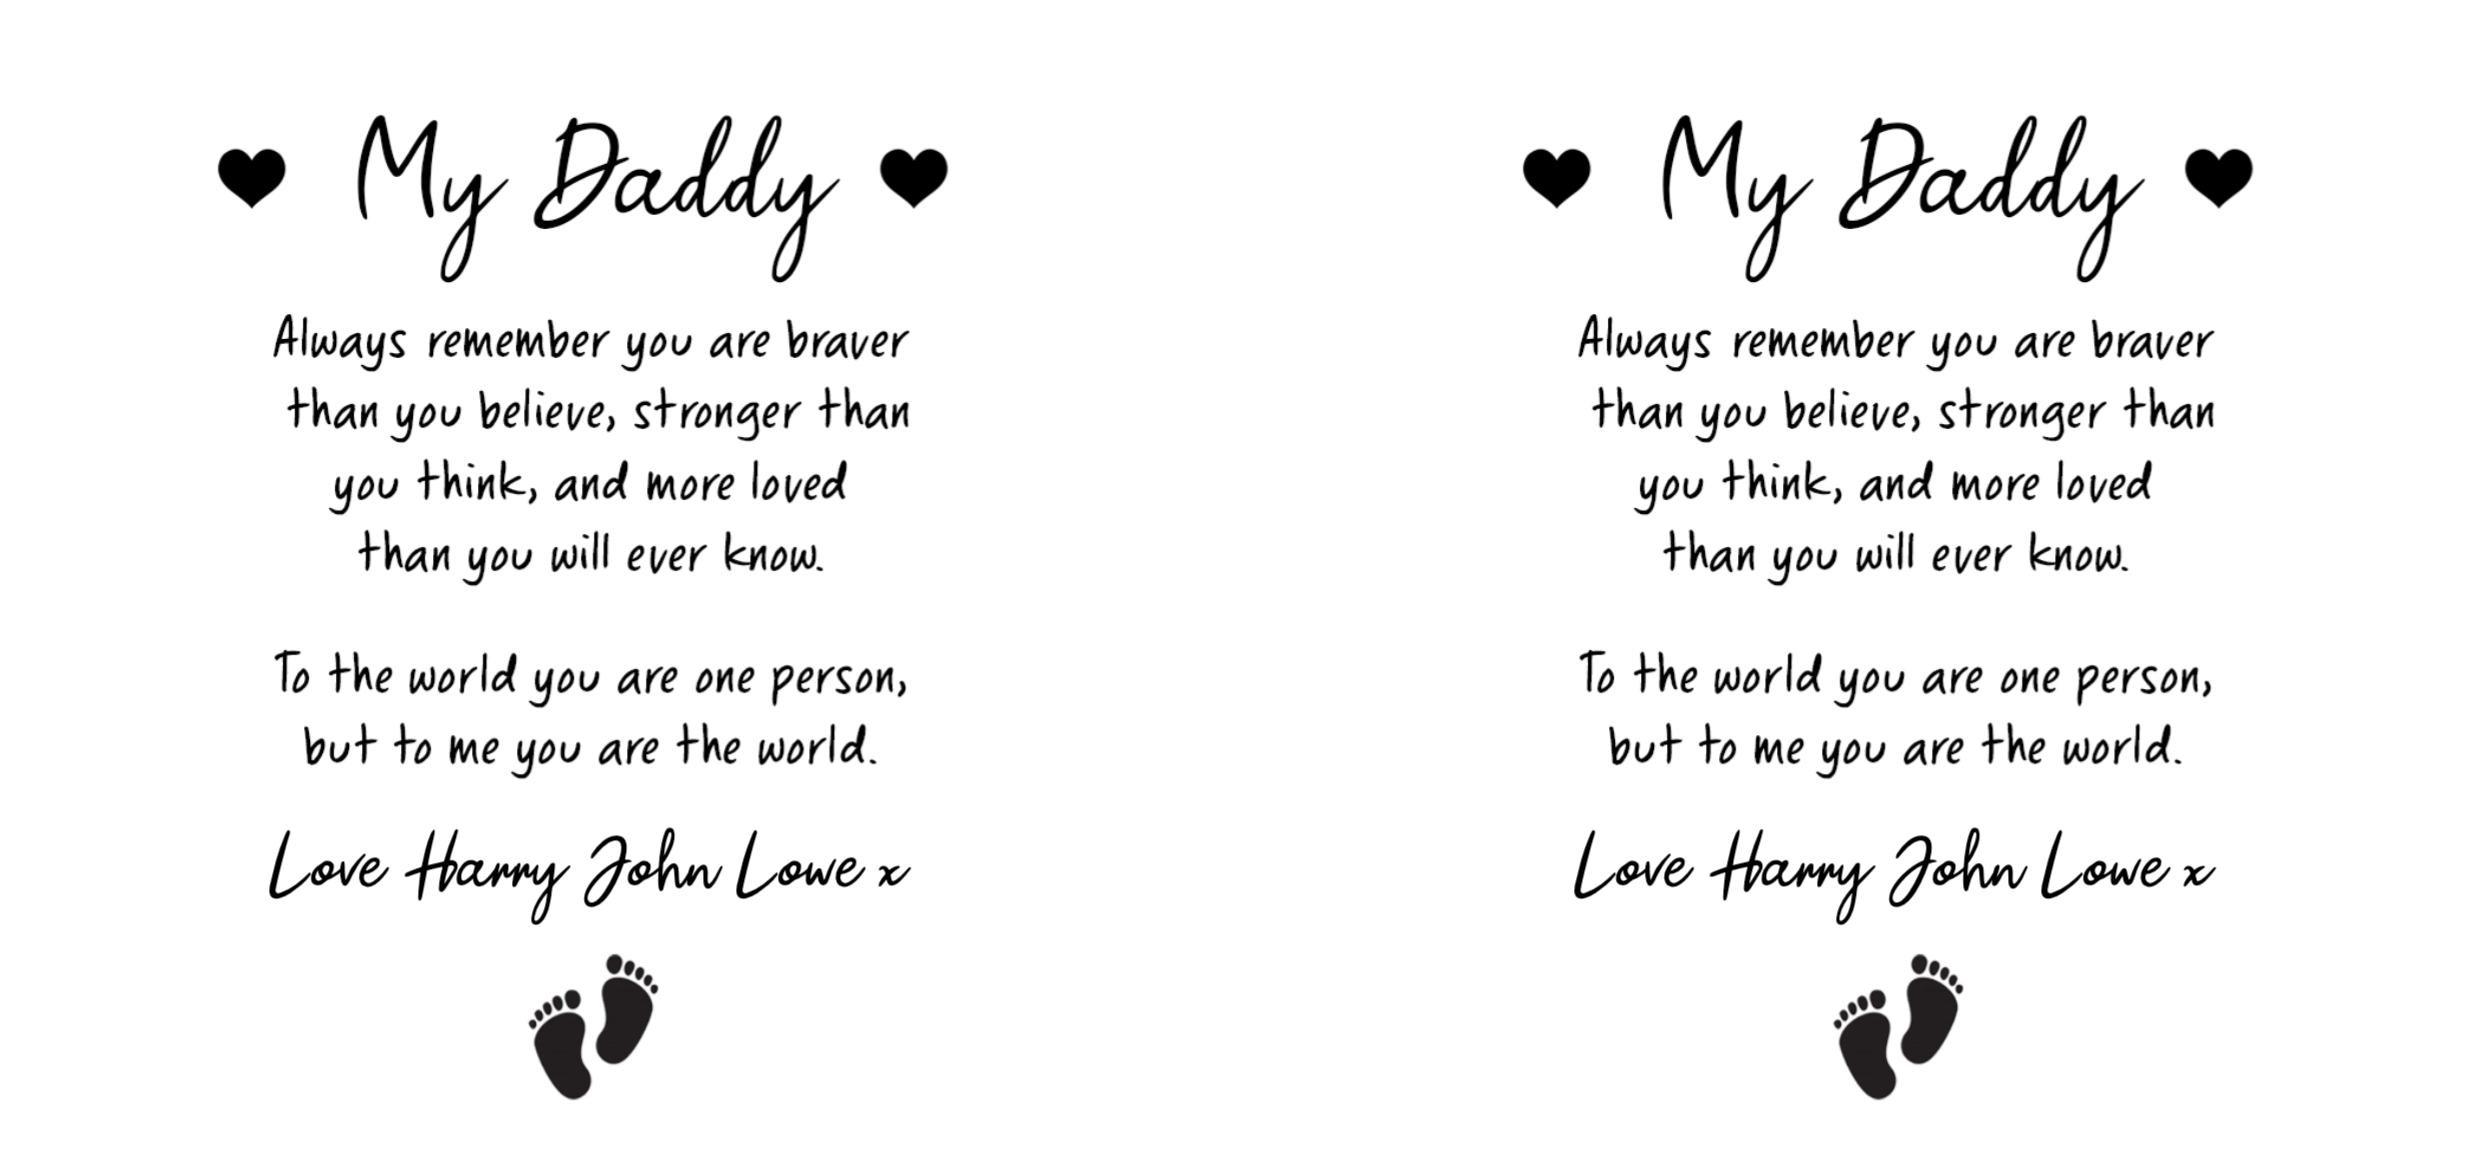 My Daddy
Always remember you are braver
than you believe, stronger than
you think, and more loved
than you will ever know.
To the world you are one person,
but to me you are the world.
Love Harry John Lowe x
My Daddy
Always remember you are braver
than you believe, stronger than
you think, and more loved
than you will ever know.
To the world you are one person,
but to me you are the world.
Love Harry John Lowe x